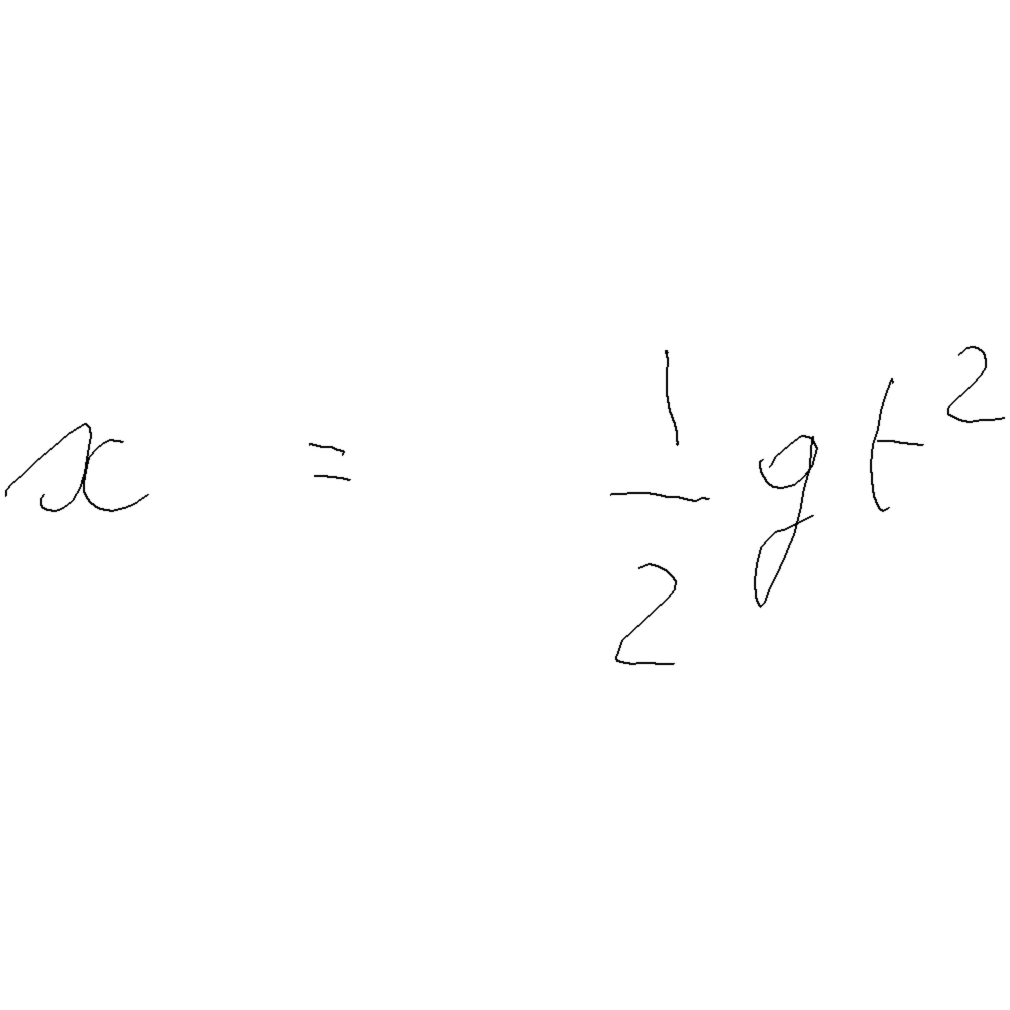 x = \frac{1}{2} g t^2